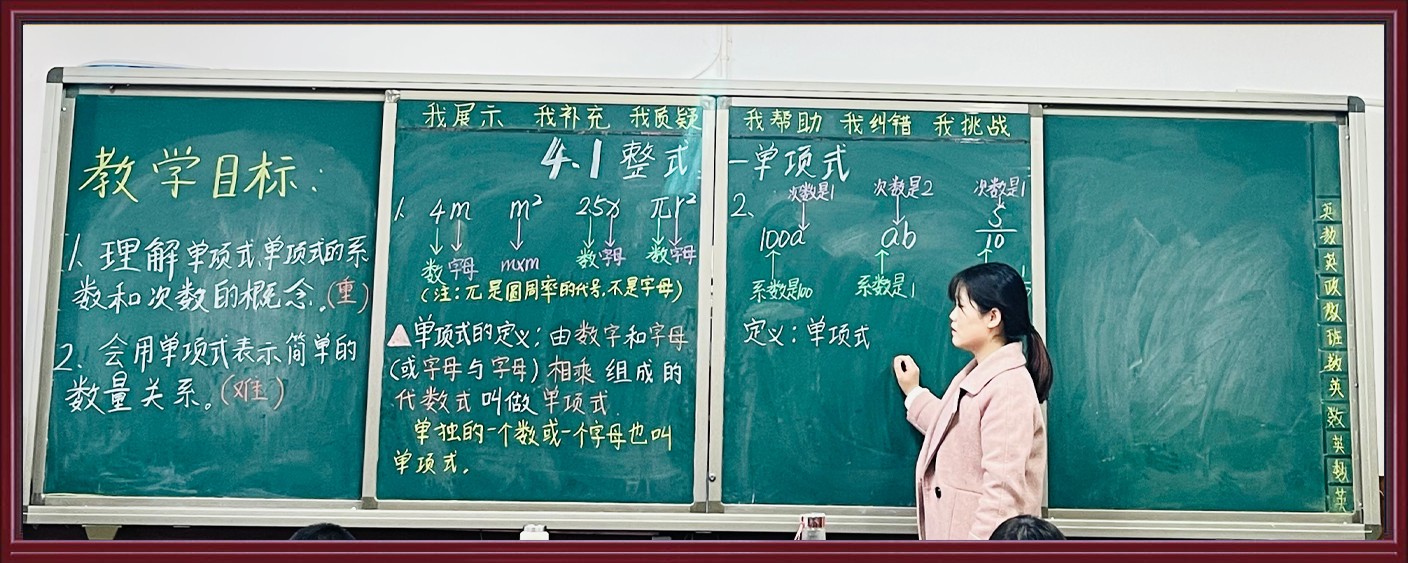 教学目标：
1、理解单项式、单项式的系
数和次数的概念。（重）
2、会用单项式表示简单的
数量关系。（难）
我展示 我补充 我质疑
4.1 整式
1、 4m m² 2.5x πr²
数 字母 m×m 数 字母 数 字母
（注：π是圆周率的代号，不是字母）
单项式的定义：由数字和字母
（或字母与字母）相乘组成的
代数式叫做单项式.
单独的一个数或一个字母也叫
单项式。
我帮助 我纠错 我挑战
—单项式
次数是1 次数是2 次数是1
2、 100a ab 5/10
系数是100 系数是1
定义：单项式
英
数
英
政
数
班
数
英
数
英
数
英